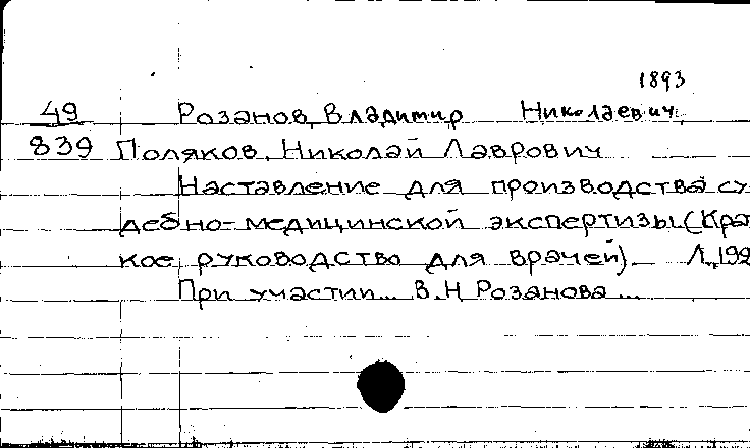 1893
49 Розанов, Владимир Николаевич,
839 Поляков, Николай Лаврович
Наставление для производства су
дебно-медицинской экспертизы (Крат
кое руководство для врачей). Л., 192
При участии... В.Н Розанова...